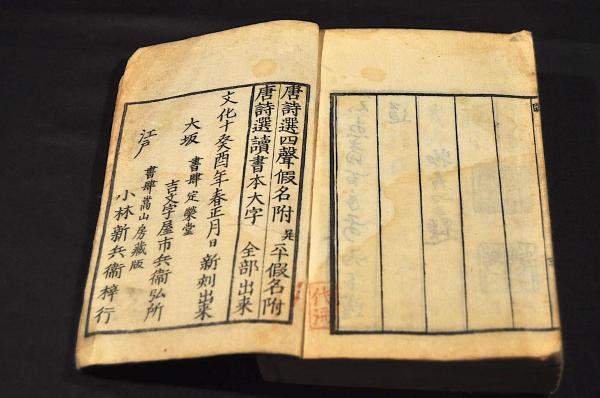 唐詩選四聲假名附 呉 平假名附
唐詩選讀書本大字 全部出来
文化十癸酉年春正月日 新刻出来
大坂 書肆 定榮堂
吉文字屋市兵衞弘所
江戸 書肆嵩山房藏版
小林新兵衞梓行